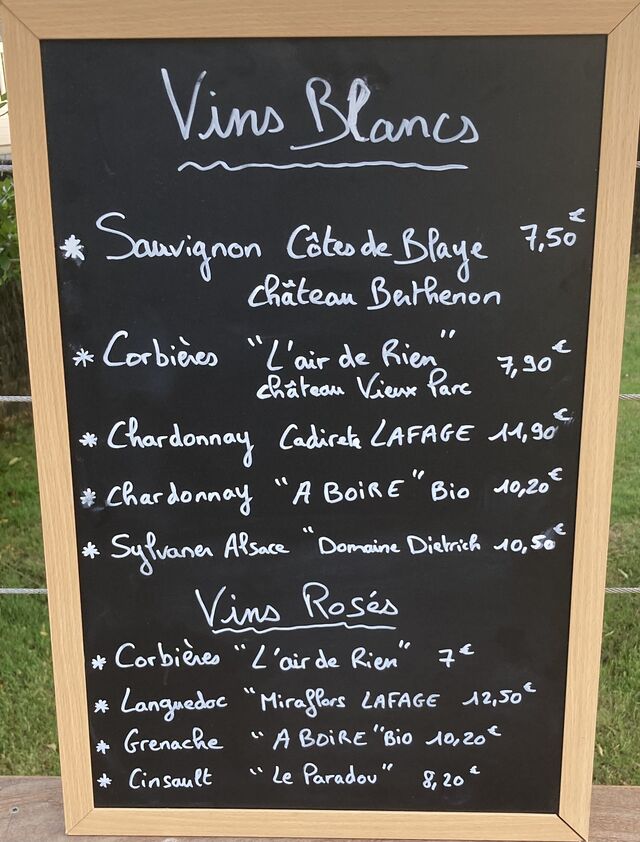 Vins Blancs
* Sauvignon Côtes de Blaye 7,50€
château Berthenon
* Corbières "L'air de Rien" 7,90€
château Vieux Parc
* Chardonnay Cadirete LAFAGE 11,90€
* Chardonnay "A BOIRE" Bio 10,20€
* Sylvaner Alsace "Domaine Dietrich 10,50€
Vins Rosés
* Corbières "L'air de Rien" 7€
* Languedoc "Miraflors LAFAGE 12,50€
* Grenache "A BOIRE" Bio 10,20€
* Cinsault "Le Paradou" 8,20€